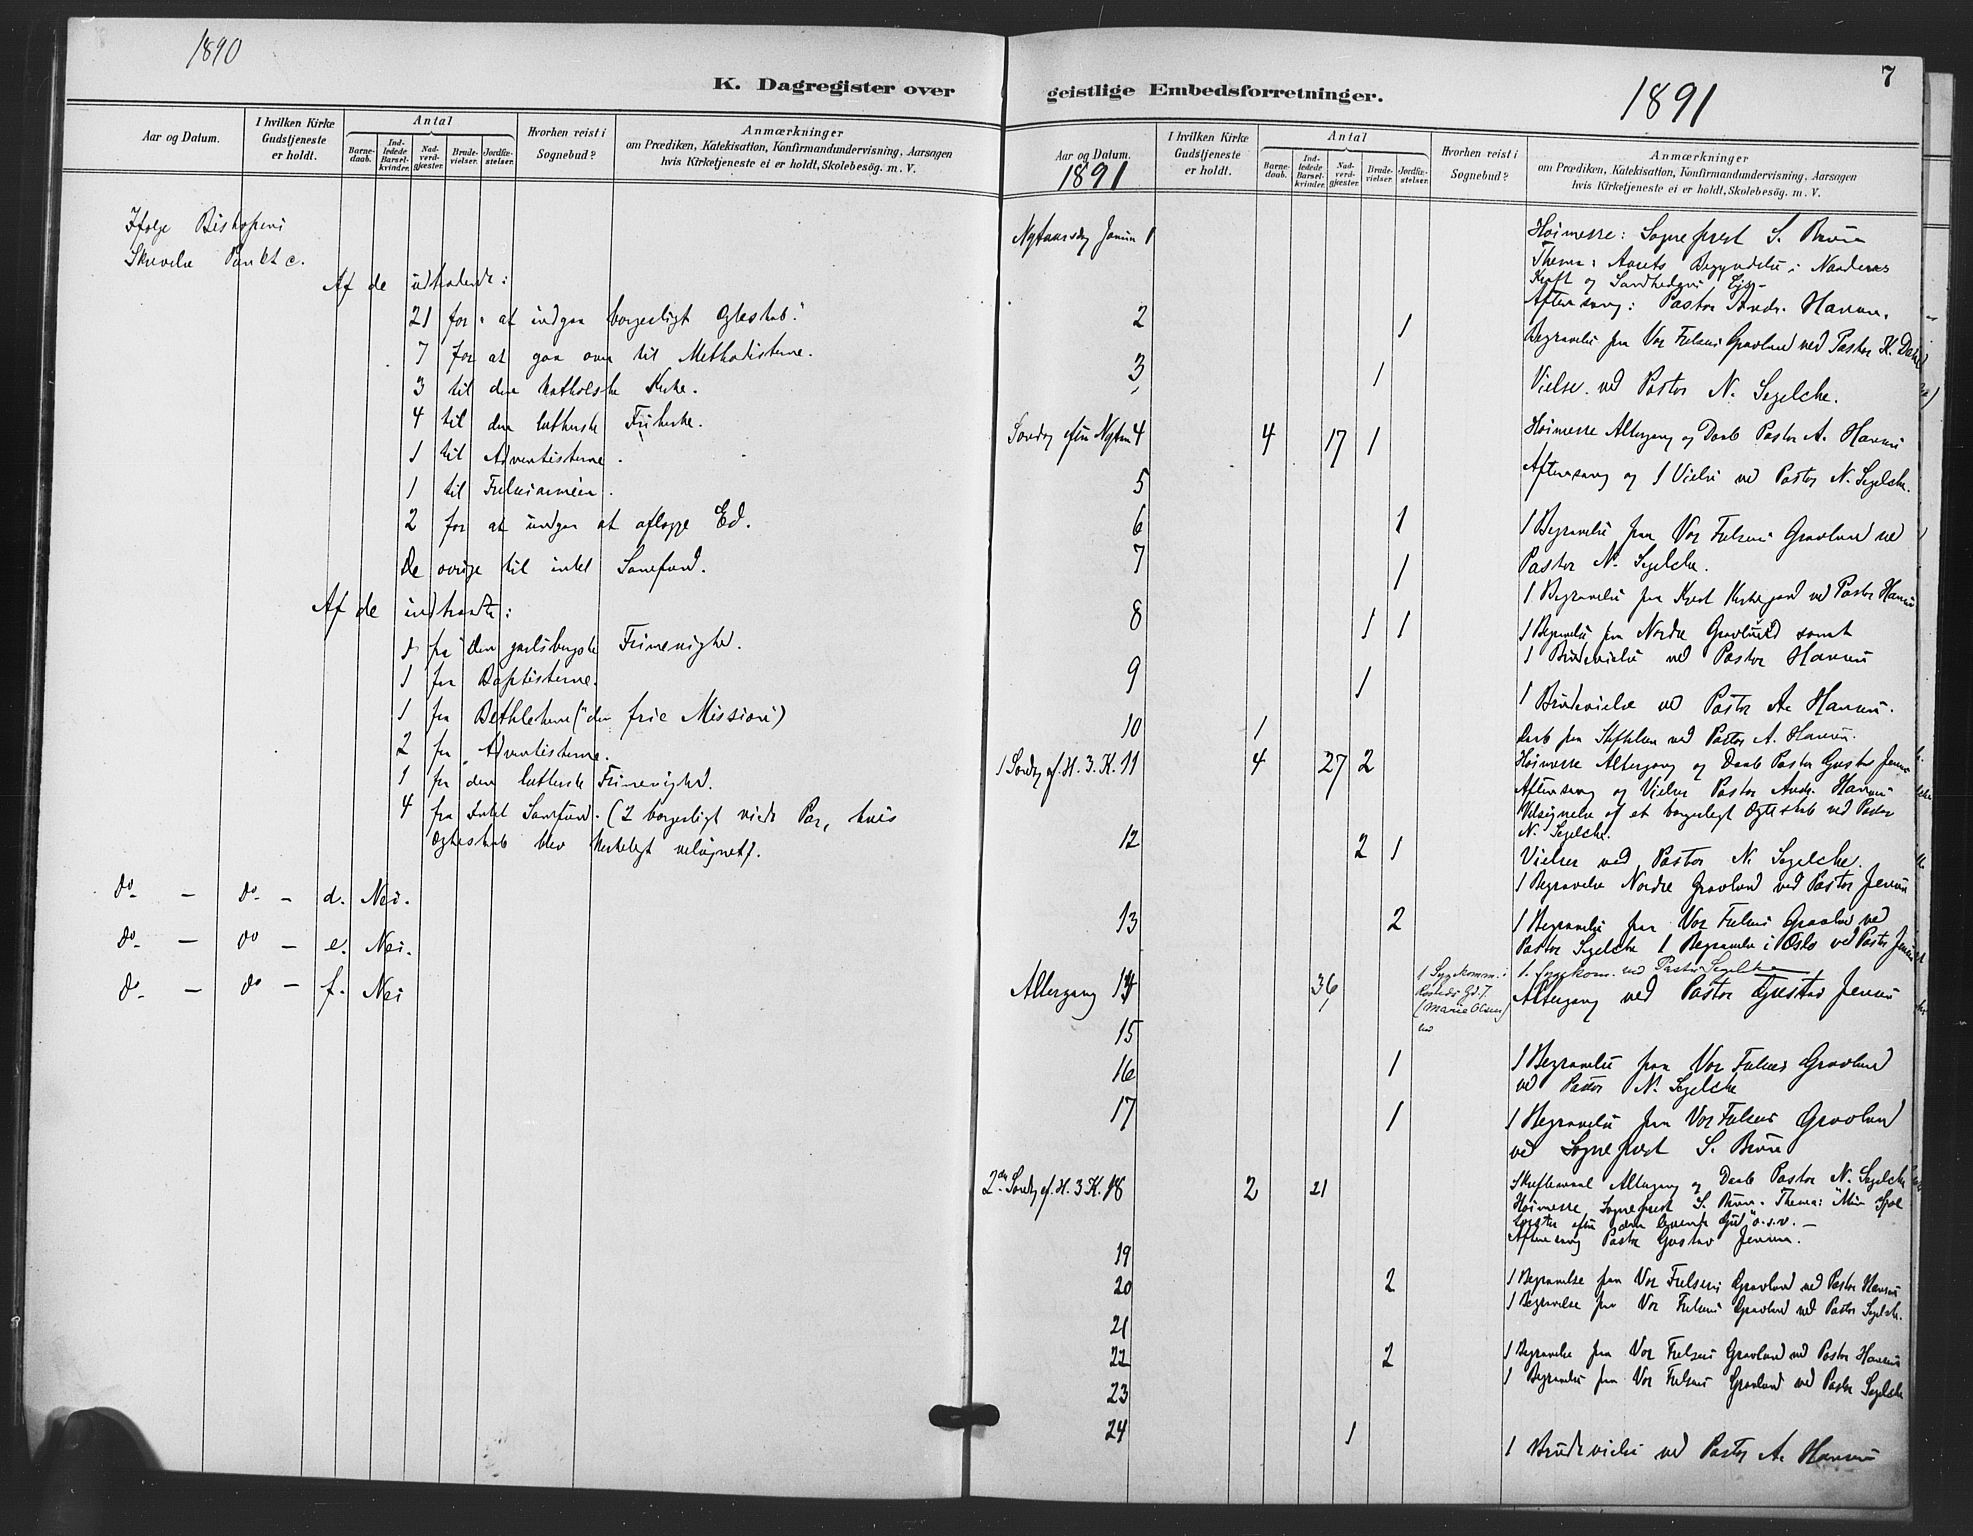 1890
K. Dagregister over
Aar og Datum.
I hvilken Kirke Gudstjeneste er holdt.
Antal
Barnedaab.
Indledede Barselkvinder.
Nadverdgjæster.
Brudevielser.
Jordfæstelser.
Hvorhen reist i Sognebud?
Anmærkninger
om Prædiken, Katekisation, Konfirmandundervisning, Aarsagen
hvis Kirketjeneste ei er holdt, Skolebesög. m. V.
Ifølge Biskopens
Skrivelse Punkt c.
Af de udtraadte:
21 for at indgaa borgerligt Ægteskab.
7 for at gaa over til Methodisterne.
3 til den katholske Kirke.
4 til den lutherske Frikirke.
1 til Adventisterne.
1 til Frelsesarmeen.
2 for at undgaa at aflægge Ed.
De øvrige til intet Samfund.
Af de indtraadte:
fra den jarlsbergske Frimenighed.
1 fra Baptisterne.
1 fra Bethlehem ("den frie Mission")
2 fra Adventisterne.
1 fra den lutherske Frimenighed.
4 fra intet Samfund. (2 borgerligt viede Par, hvis
Ægteskab blev kirkeligt velsignet).
do - do - d. Nei.
do - do - e. Nei.
do - do - f. Nei
geistlige Embedsforretninger.
1891
7
Aar og Datum.
1891
I hvilken Kirke Gudstjeneste er holdt.
Antal
Barnedaab.
Indledede Barselkvinder.
Nadverdgjæster.
Brudevielser.
Jordfæstelser.
Hvorhen reist i Sognebud?
Anmærkninger
om Prædiken, Katekisation, Konfirmandundervisning, Aarsagen
hvis Kirketjeneste ei er holdt, Skolebesög. m. V.
Nytaarsdag Januar 1 Høimesse: Sogneprest S. Bruun
Thema: Aarets Begyndelse i Naadens
Kraft og Sandhedens
Aftensang: Pastor Andr. Hansen.
2 1 Begravelse fra Vor Frelsers Gravlund ved Pastor K.
3 1 Vielse ved Pastor N. Segelcke.
Søndag efter Nytaar 4 4 17 1 Høimesse Altergang og Daab Pastor A. Hansen
Aftensang og 1 Vielse ved Pastor N. Segelcke.
5
6 1 1 Begravelse fra Vor Frelsers Gravlund ved
Pastor N. Segelcke.
7 1 1 Begravelse fra Krist Kirkegaard ved Pastor Hansen
8 1 1 1 Begravelse fra Nordre Gravlund samt
1 Brudevielse ved Pastor Hansen
9 1 1 Brudevielse ved Pastor A. Hansen.
10 1 Daab fra Stiftelsen ved Pastor A. Hansen.
1 Søndag ef. H. 3. K. 11 4 27 2 Høimesse Altergang og Daab Pastor Gustav Jensen
Aftensang og Vielser Pastor Andr. Hansen
Velsignelse af et borgerligt Ægteskab ved Pastor
N. Segelcke.
12 2 1 Vielser ved Pastor N. Segelcke.
1 Begravelse Nordre Gravlund ved Pastor Jensen
13 2 1 Begravelse fra Vor Frelsers Gravlund ved
Pastor Segelcke 1 Begravelse i Oslo ved Pastor Jensen
1 Sygekomm. i 1. Sygekom. ved Pastor Segelcke
Altergang 14 36 Gd. 7 Altergang ved Pastor Gustav Jensen
(Marie Olsen)
15
16 1 1 Begravelse fra Vor Frelsers Gravlund
ved Pastor N. Segelcke
17 1 1 Begravelse fra Vor Frelsers Gravlund
ved Sogneprest S. Bruun
2den Søndag ef. H. 3 K. 18 2 21 Skriftemaal Altergang og Daab Pastor N. Segelcke
Høimesse Sogneprest S. Bruun. Thema: "Min Sjæl
tørster efter den levende Gud" o.s.v. -
Aftensang Pastor Gustav Jensen.
19
20 2 1 Begravelse fra Vor Frelsers Gravlund ved Pastor Hansen
1 Begravelse fra Vor Frelsers Gravlund ved Pastor Segelcke.
21
22 2 1 Begravelse fra Vor Frelsers Gravlund ved Pastor Hansen
1 Begravelse fra Vor Frelsers Gravlund ved Pastor Segelcke
23
24 1 1 Brudevielse ved Pastor A. Hansen